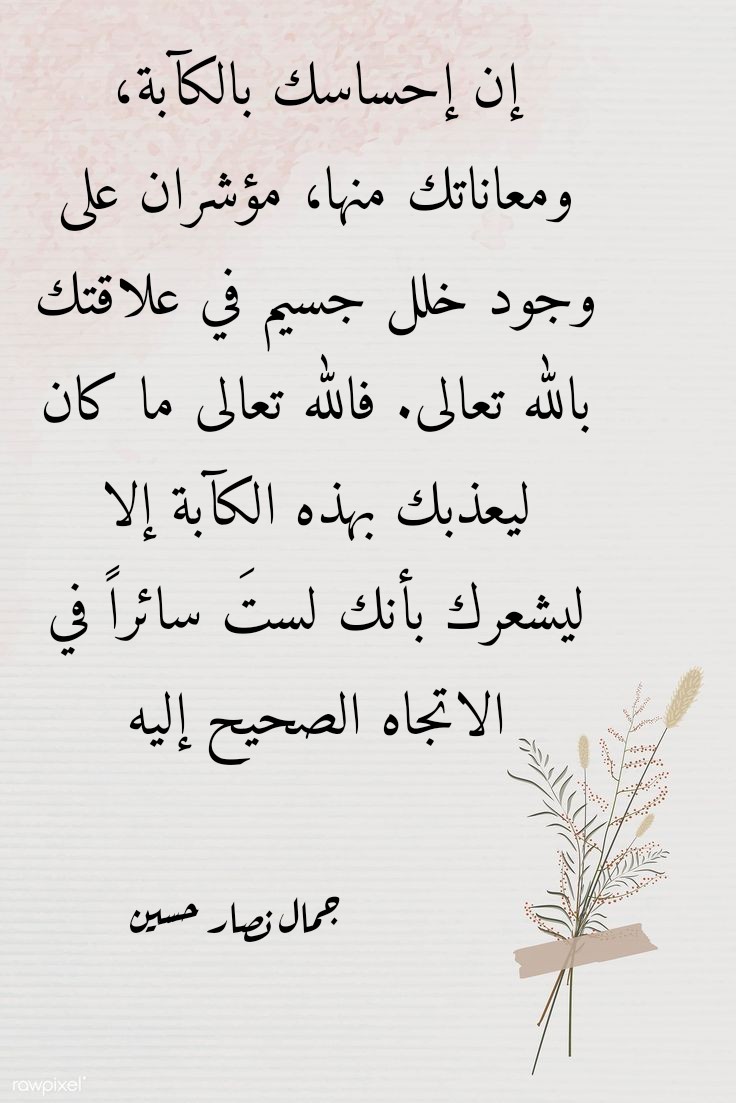 إن إحساسك بالكآبة،
ومعاناتك منها، مؤشران على
وجود خلل جسيم في علاقتك
بالله تعالى. فالله تعالى ما كان
ليعذبك بهذه الكآبة إلا
ليشعرك بأنك لستَ سائراً في
الاتجاه الصحيح إليه
جمال نصار حسين
rawpixel